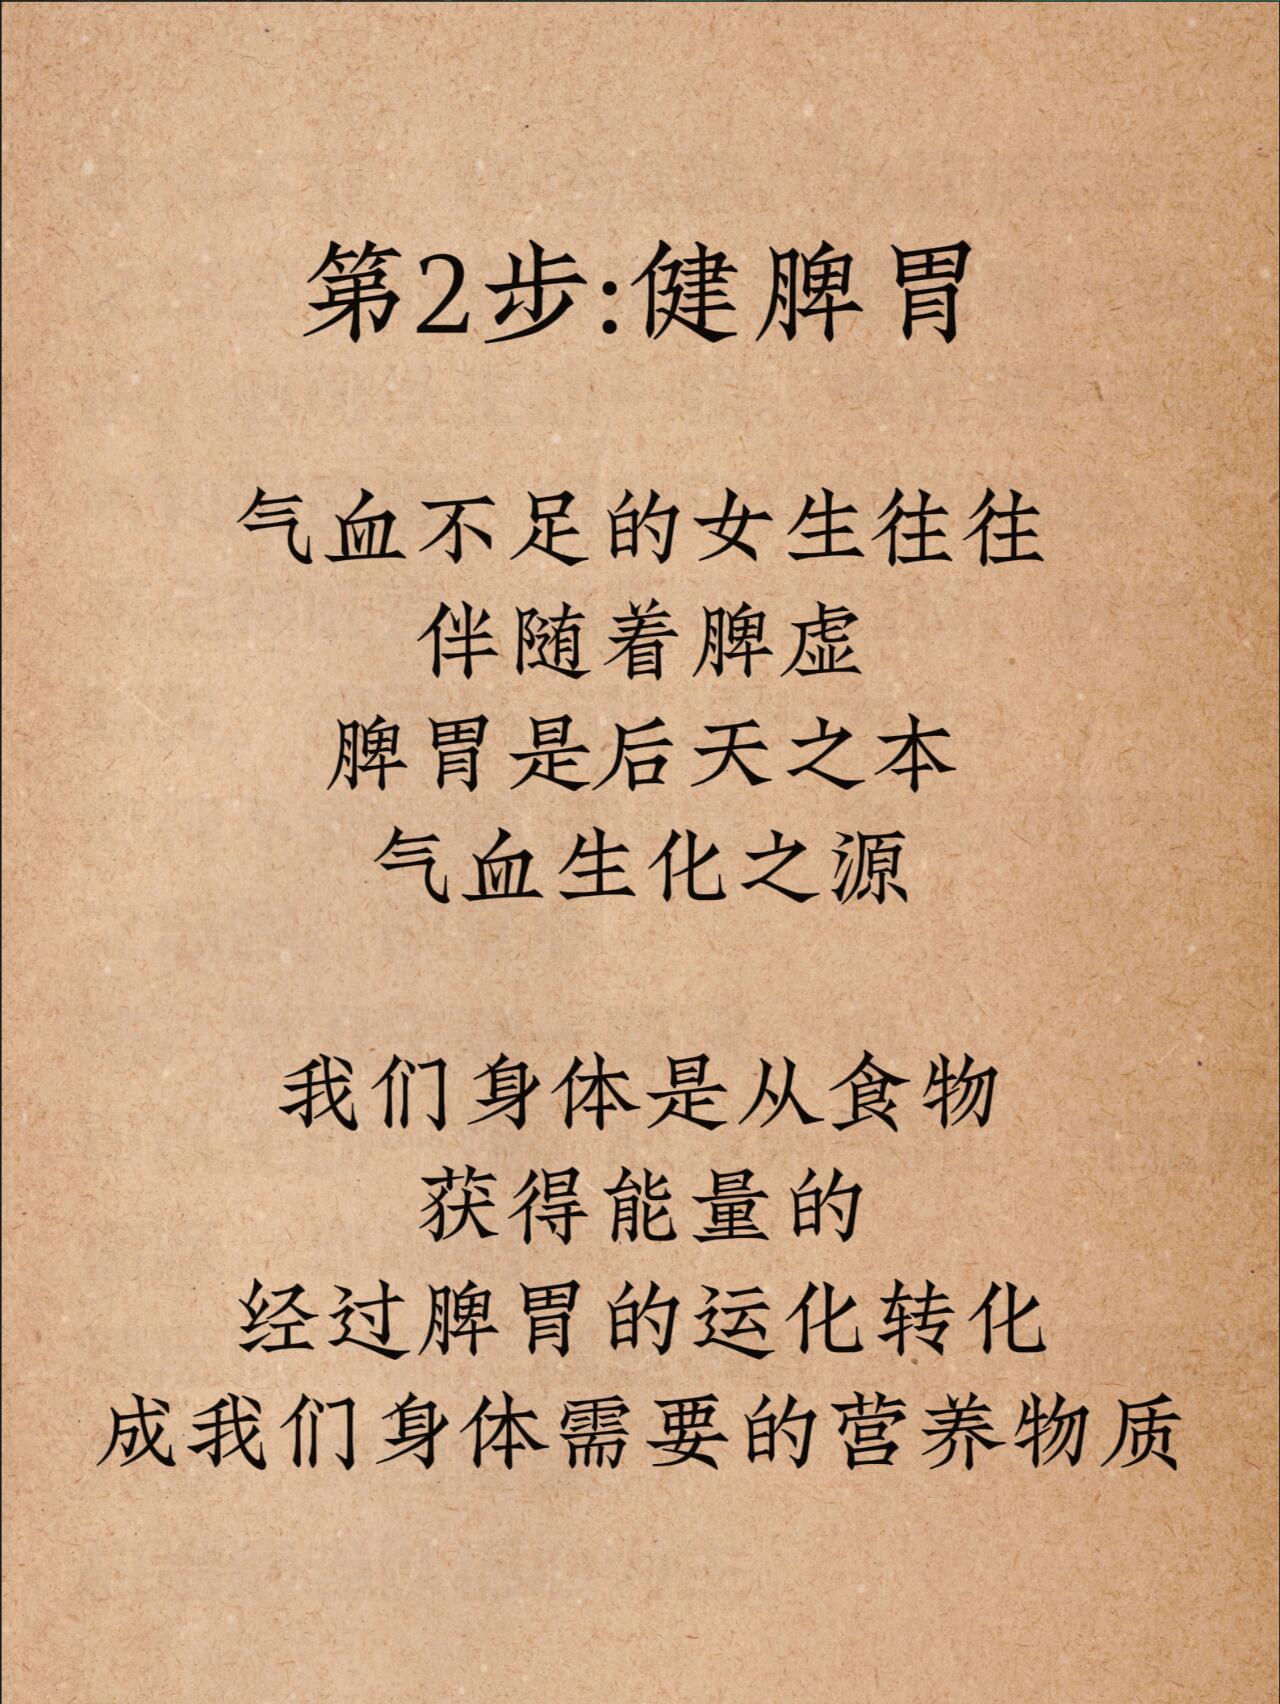 第2步:健脾胃
气血不足的女生往往
伴随着脾虚
脾胃是后天之本
气血生化之源
我们身体是从食物
获得能量的
经过脾胃的运化转化
成我们身体需要的营养物质